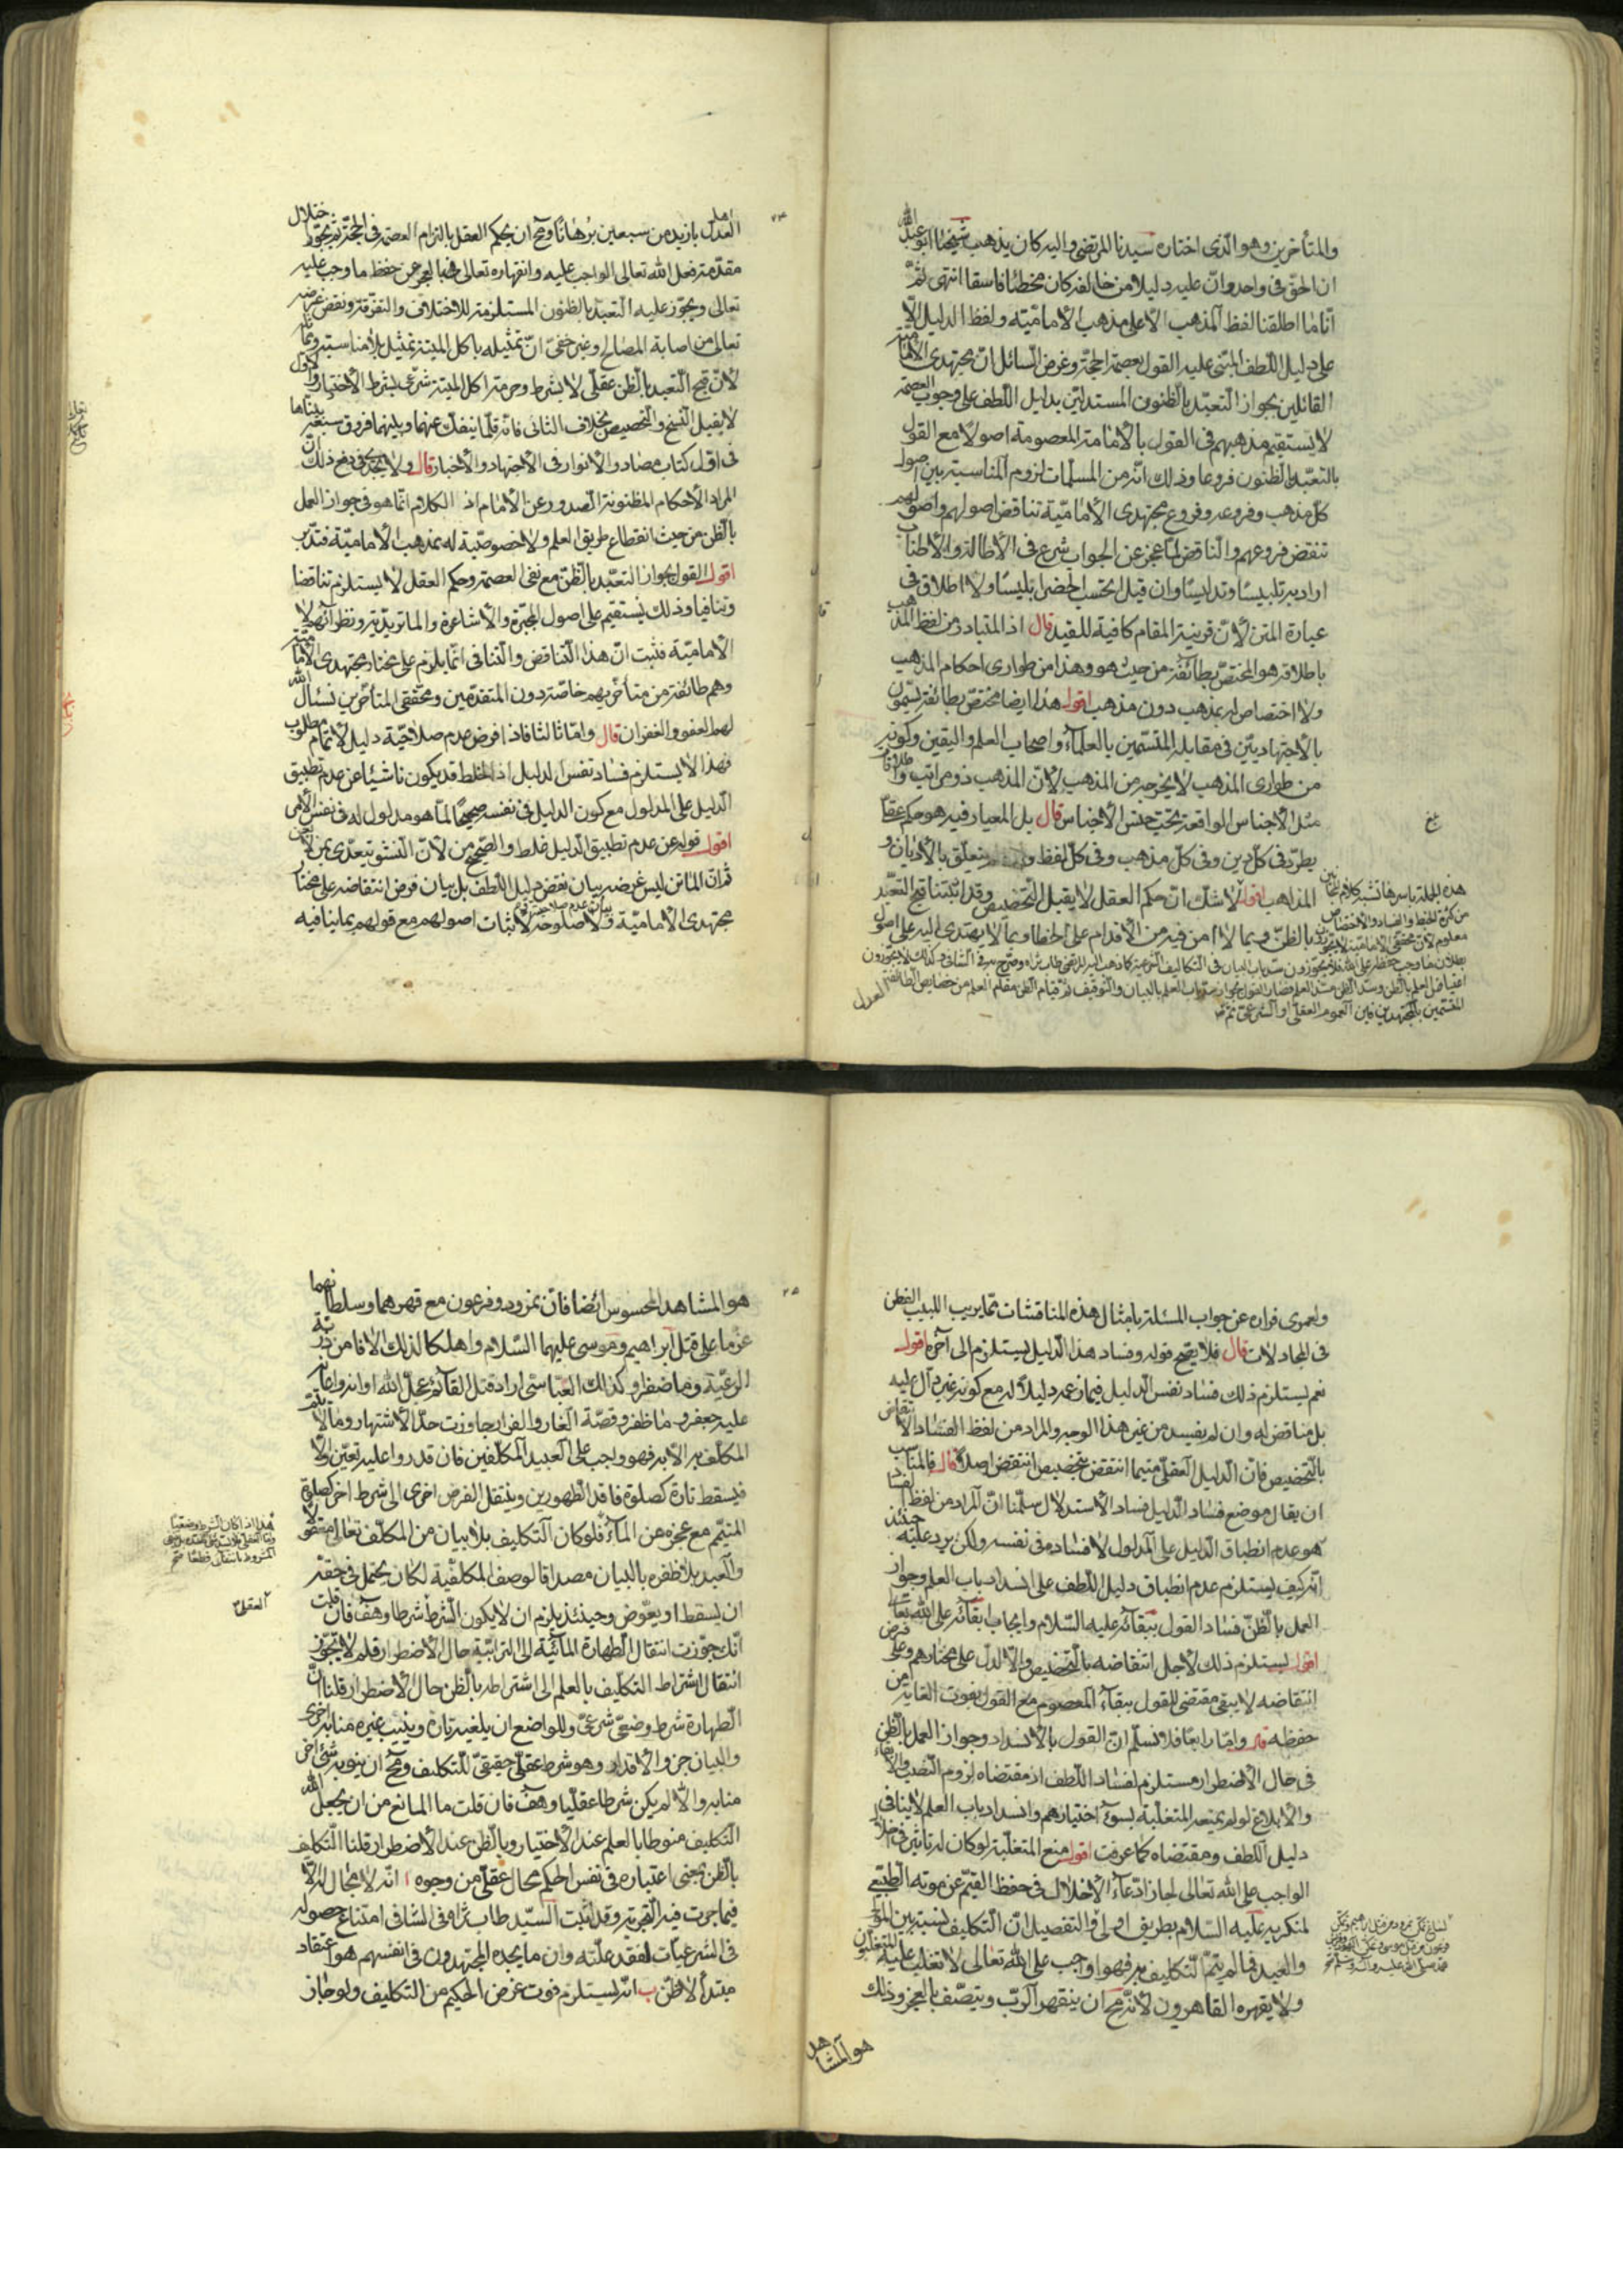 والمتأخرين وهو الذى اختاره سيدنا المرتضى واليه كان يذهب شيخنا ابو عبد الله
ان الحق فى واحد وان عليه دليلا من خالفه كان مخطئا فاسقا انتهى ثم
انا ما اطلقنا لفظ المذهب الا على مذهب الامامية ولفظ الدليل الا
على دليل اللطف المبتنى عليه القول بعصمة الحجة وغرض السائل ان مجتهدى الامامية
القائلين بجواز التعبد بالظنون المستدلين بدليل اللطف على وجوب العصمة
لا يستقيم مذهبهم فى القول بالامامة المعصومة اصولا مع القول
بالتعبد بالظنون فروعا وذلك انه من المسلمات لزوم المناسبة بين اصول
كل مذهب وفروعه وفروع مجتهدى الامامية تناقض اصولهم واصولهم
تنقض فروعهم والناقض لما عجز عن الجواب شرع فى الاطالة والاطناب
اراد به تلبيسا وتدليسا وان قيل لاحتسب الحضرا بتليسا ولا اطلاق فى
عبارة المتن لان قرينة المقام كافية للقيد قال اذ المتبادر من لفظ المذهب
باطلاقه هو المختص بطائفة من حيث هو وهذا من طوارى احكام المذهب
ولا اختصاص له بمذهب دون مذهب اقول هذا ايضا مختص بطائفة يسمون
بالاجتهاديين فى مقابلة المتسمين بالعلماء واصحاب العلم واليقين وكونه
من طوارى المذهب لا يخرجه من المذهب لان المذهب ذو مراتب واطلاقات
مثل الاجناس الواقعة تحت جنس الاجناس قال بل المعيار فيه هو حكم عقلا
يطرد فى كل دين وفى كل مذهب وفى كل لفظ و يتعلق بالاديان و
المذاهب اقول لا شك ان حكم العقل لا يقبل التخصيص وقد اثبتنا قبح التعبد
بالظن وبما لا امن فيه من الاقدام على الخطا وبما لا يهتدى اليه على اصول
العدل
هذه الجملة باسرها تشبه كلام
من كثرة الخبط والفساد والاختصاص
معلوم لان محققى الامامية لا يجوزون
العدل بازيد من سبعين برهانا ومح ان يحكم العقل بالتزام العصمة فى الحجة ثم يجوز اختلال
مقدمة فعل الله تعالى الواجب عليه وانقهاره تعالى بالعجز عن حفظ ما وجب عليه
تعالى ويجوز عليه التعبد بالظنون المستلزمة للاختلاف والتفرقة ونقض غرضه
تعالى من اصابة المصالح وغير خفى ان تمثيله باكل الميتة تمثيل بلا مناسبة
لان قبح التعبد بالظن عقلى لا يشرط وحرمة اكل الميتة شرعى بشرط الاختيار والاول
لا يقبل النسخ والتخصيص بخلاف الثانى فانه قلما ينفك عنهما وبينهما فروق سبعة بيناها
فى اول كتاب مصادر الانوار فى الاجتهاد والاخبار قال ولا يجدى فى دفع ذلك ان
المراد الاحكام المظنونة الصدور عن الامام اذ الكلام انما هو فى جواز العمل
بالظن من حيث انقطاع طريق العلم ولا خصوصية له بمذهب الامامية فتدبر
اقول القول بجواز التعبد بالظن مع نفى العصمة وحكم العقل لا يستلزم تناقضا
وتنافيا وذلك يستقيم على اصول المجبرة والاشاعرة والماتريدية ونظرائهم لا
الامامية فثبت ان هذا التناقض والتنافى انما يلزم على مختار مجتهدى الامامية
وهم طائفة من متأخريهم خاصة دون المتقدمين ومحققى المتأخرين نسئال الله
لهم العفو والغفران قال واما ثالثا فاذا فرض عدم صلاحية دليل لاتمام مطلوب
فهذا لا يستلزم فساد نفس الدليل اذ الغلط قد يكون ناشيا عن عدم تطبيق
الدليل على المدلول مع كون الدليل فى نفسه صحيحا لما هو مدلول له فى نفس الامر
اقول قوله عن عدم تطبيق الدليل غلط والصحيح من لان النشو يتعدى بمن لا بعن
ثم ان الماتن ليس غرضه بيان نقض دليل اللطف بل بيان فرض انتقاضه على مختار
مجتهدى الامامية ولا صلوحه لاثبات اصولهم مع قولهم بما ينافيه
ولعمرى فراره عن جواب المسئلة بامثال هذه المناقشات مما يريب اللبيب الفطن
فى المجادلات قال فلا يصح قوله وفساد هذا الدليل يستلزم الى آخره اقول
نعم يستلزم ذلك فساد نفس الدليل فيما زعمه دليلا له مع كونه غير دال عليه
بل مناقض له وان لم يفسد من غير هذا الوجه والمراد من لفظ الفساد الانتقاض
بالتخصيص فان الدليل العقلى متيما انتقض بتخصيص انتقض اصلا قال فالمناسب
ان يقال موضع فساد الدليل فساد الاستدلال سلمنا ان المراد من لفظ الفساد
هو عدم انطباق الدليل على المدلول لا فساده فى نفسه ولكن يرد عليه حينئذ
انه كيف يستلزم عدم انطباق دليل اللطف على انسداد باب العلم وجواز
العمل بالظن فساد القول ببقائه عليه السلام وايجاب ابقائه على الله تعالى
اقول يستلزم ذلك لاجل انتقاضه بالتخصيص والا لدل على مختارهم وعلى فرض
انتقاضه لا يبقى مقتضى للقول ببقاء المعصوم مع القول بفوت الغاية من
حفظه قال واما رابعا فلا نسلم ان القول بالانسداد وجواز العمل بالظن
فى حال الاضطرار مستلزم لفساد اللطف اذ مقتضاه لزوم النصب والابقاء
والابلاغ لو لم يمنعه المتغلبة بسوء اختيارهم وانسداد باب العلم لا ينافى
دليل اللطف ومقتضاه كما عرفت اقول منع المتغلبة لو كان له تاثير فى اخلال
الواجب على الله تعالى لجاز ادعاء الاخلال فى حفظ القيم عن موته الطبيعى
لمنكريه عليه السلام بطريق اولى والتفصيل ان التكليف نسبة بين المولى
والعبد فما لم يتم التكليف به فهو واجب على الله تعالى لا تغلب عليه المتغلبون
ولا يقهره القاهرون لانه مح ان ينقهر الرب ويتصف بالعجز وذلك
هو المشاهد
هو المشاهد المحسوس ايضا فان نمرود وفرعون مع قهرهما وسلطانهما
عزما على قتل ابراهيم وموسى عليهما السلام واهلكا لذلك الافا من ذرية
الرعية وما ضفرا وكذلك العباسى اراد قتل القائم عجل الله
عليه جعفر وما ظفر وقصة الغار والفرار جاوزت حد الاشتهار وما لا يتم
المكلف به الا به فهو واجب على العبيد المكلفين فان قدروا عليه تعين والا
فيسقط تارة كصلوة فاقد الطهورين وينتقل الفرض اخرى الى شرط اخر كصلوة
المتيمم مع عجزه عن الماء فلو كان التكليف بلا بيان من المكلف تعالى
والعبد بلا ظفره بالبيان مصداقا لوصف المكلفية لكان يحتمل فى حقه
ان يسقط او يعوض وحينئذ يلزم ان لا يكون الشرط شرطا وهف فان قلت
انك جوزت انتقال الطهارة المائية الى الترابية حال الاضطرار فلم لا تجوز
انتقال اشتراط التكليف بالعلم الى اشتراطه بالظن حال الاضطرار قلنا ان
الطهارة شرط وضعى شرعى وللواضع ان يلغيه تارة وينيب غيره منابه اخرى
والبيان جزو الاقدار وهو شرط عقلى حقيقى للتكليف ومح ان ينوبه شئ اخر
منابه والا لم يكن شرطا عقليا وهف فان قلت ما المانع من ان يجعل الله
التكليف منوطا بالعلم عند الاختيار وبالظن عند الاضطرار قلنا التكليف
بالظن بمعنى اعتباره فى نفس الحكم محال عقلى من وجوه ا انه لا مجال له الا
فيما جرت فيه القرينة وقد اثبت السيد طاب ثراه فى الشافى امتناع حصوله
فى الشرعيات لفقد علته وان ما يجده المجتهدون فى انفسهم هو اعتقاد
مبتدأ لا ظن ب انه يستلزم فوت غرض الحكيم من التكليف ولو جاز